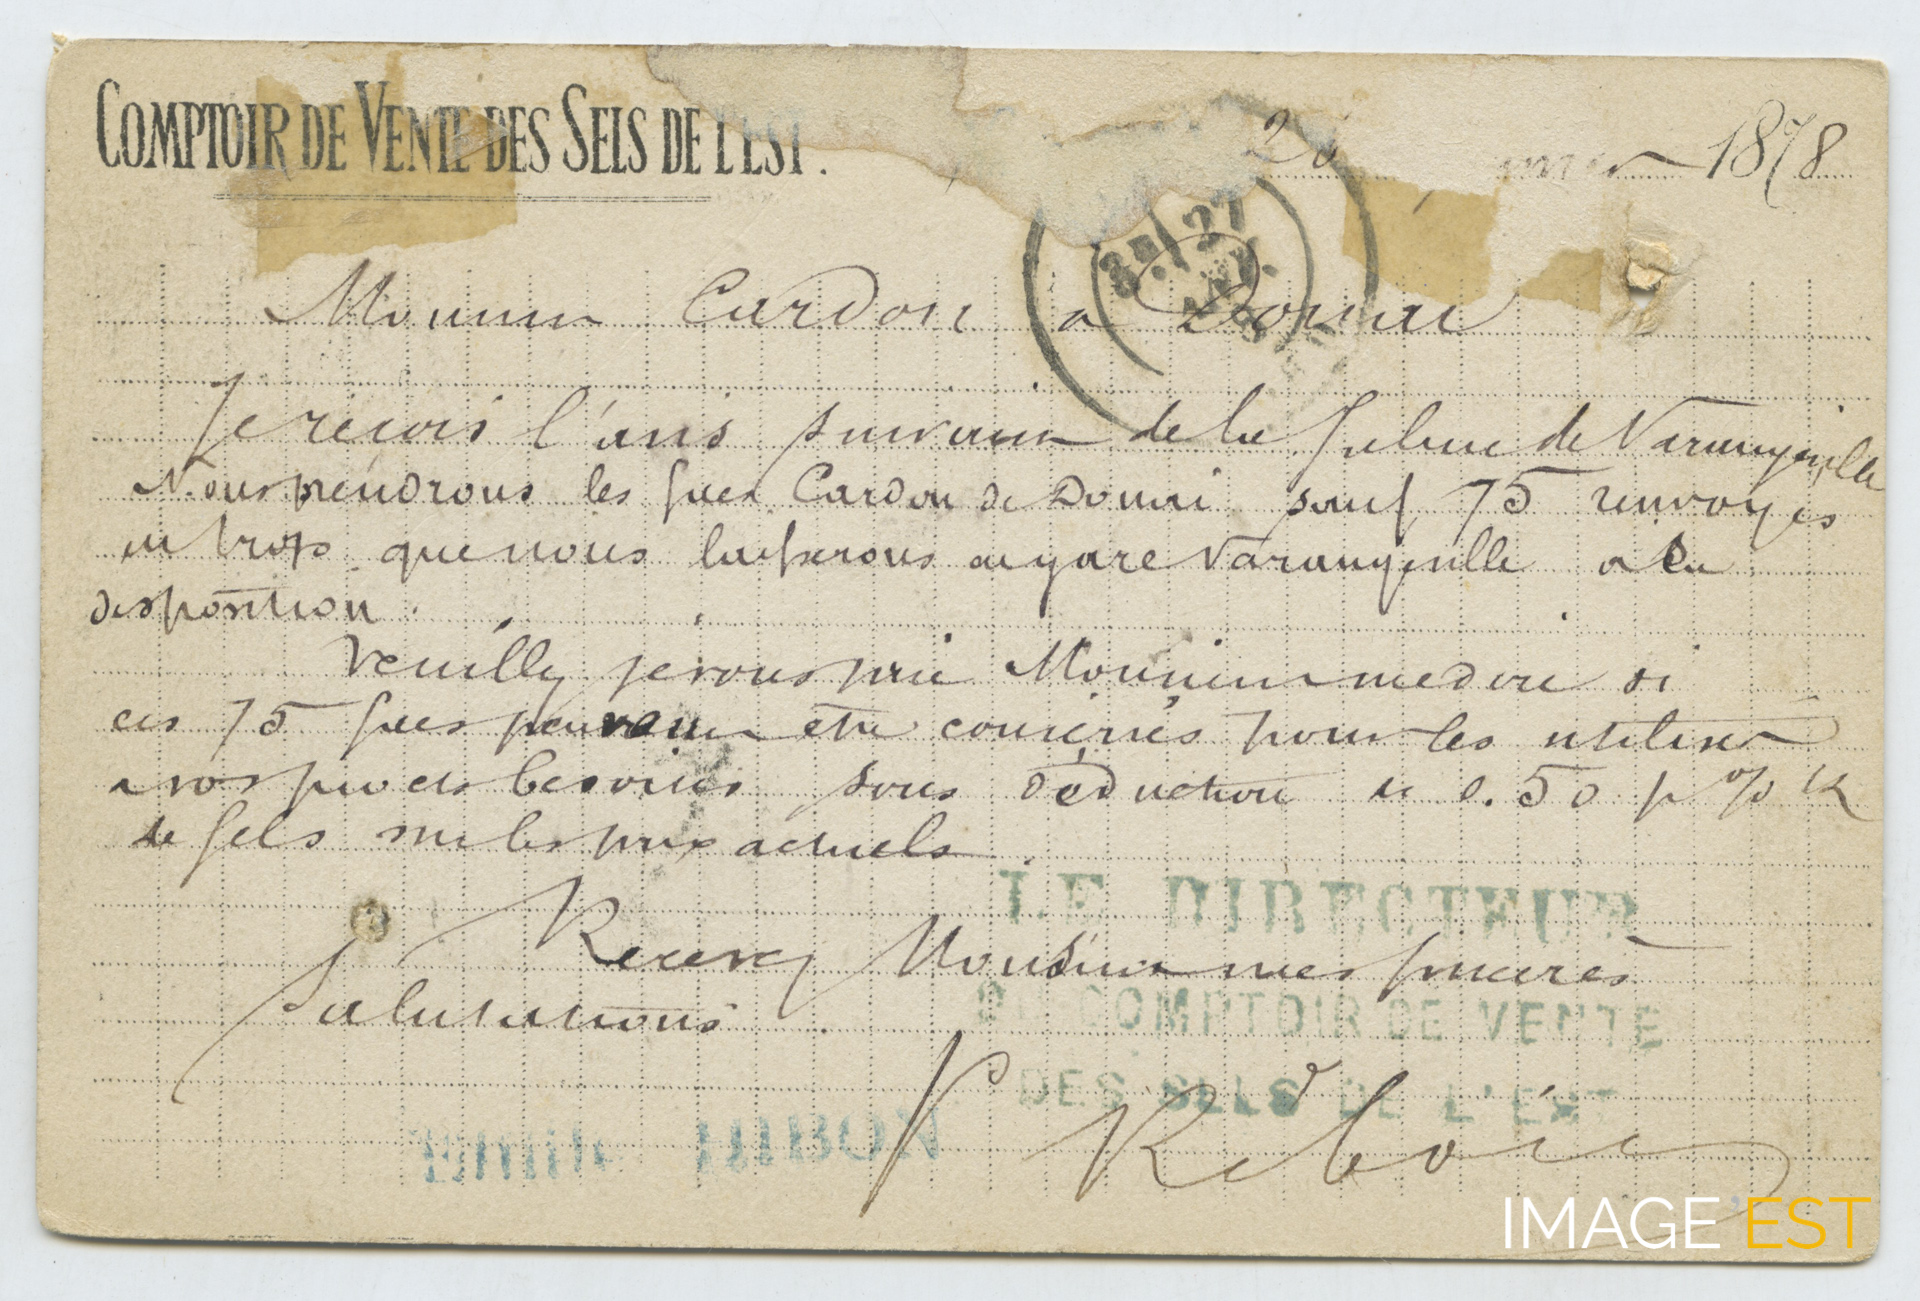 COMPTOIR DE VENTE DES SELS DE L'EST.
26 1878
27
Monsieur Cardon a Douai
Je reçois l'avis suivant de la Saline de Varangeville
Nous prendrons les sacs Cardon de Douai sauf 75 renvoyés
en trop que nous laisserons en gare Varangeville a sa
disposition.
Veuillez je vous prie Monsieur me dire si
ces 75 sacs peuvent être conservés pour les utiliser
a vos besoins sous déduction de 0.50 p % K
de sels sur les prix actuels.
Recevez Monsieur mes sincères
salutations
LE DIRECTEUR
DU COMPTOIR DE VENTE
DES SELS DE L'EST
IMAGE EST